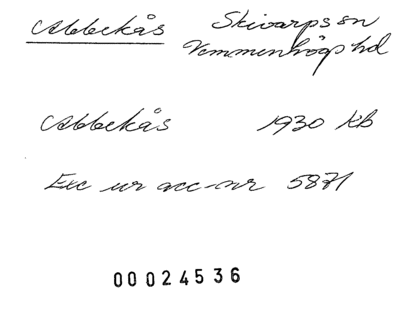 Abbekås Skivarps sn
Vemmenhögs hd
Abbekås 1930 KB
Exc ur acc-nr 5871
00024536